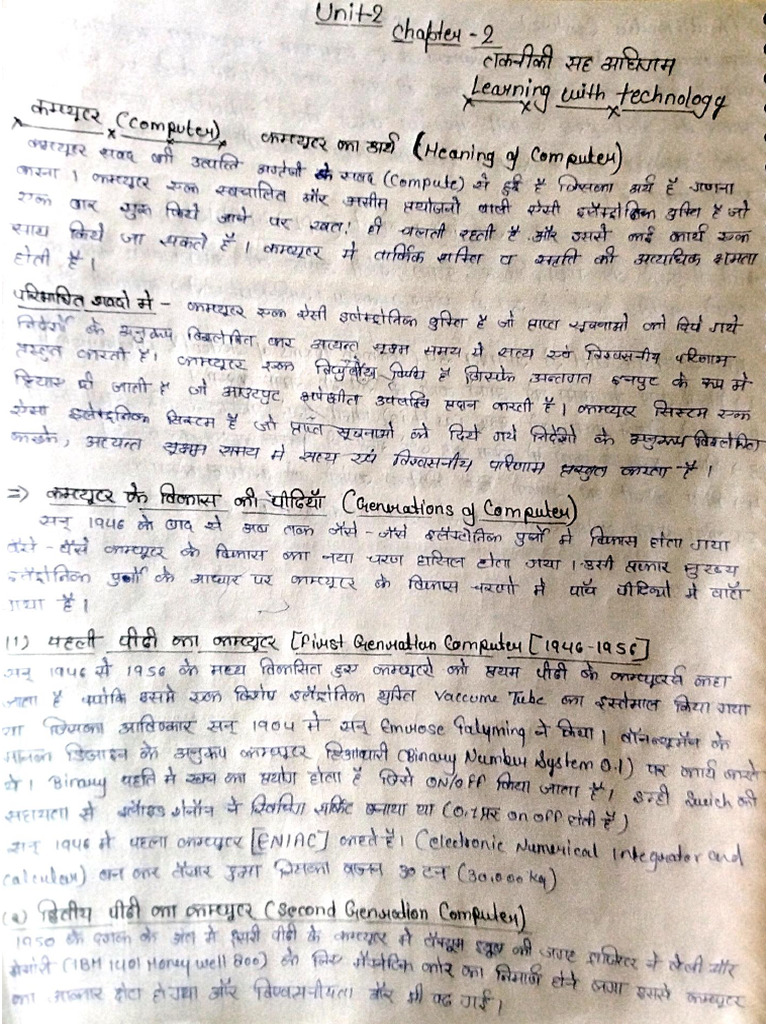 Unit-2
Chapter - 2
तकनीकी सह अधिगम
Learning with technology
कम्प्यूटर (Computer) कम्प्यूटर का अर्थ (Meaning of Computer)
कम्प्यूटर शब्द की उत्पत्ति अंग्रेजी के शब्द (Compute) से हुई है जिसका अर्थ है गणना
करना । कम्प्यूटर एक स्वचालित और असीम प्रयोजनो वाली ऐसी इलैक्ट्रोनिक युक्ति है जो
एक बार शुरू किये जाने पर स्वतः ही चलती रहती है और उससे कई कार्य एक
साथ किये जा सकते है । कम्प्यूटर मे तार्किक शक्ति व स्मृति की अत्यधिक क्षमता
होती है ।
परिभाषित शब्दो मे - कम्प्यूटर एक ऐसी इलेक्ट्रोनिक युक्ति है जो प्राप्त सूचनाओ को दिये गये
निर्देशो के अनुरूप विश्लेषित कर अत्यन्त सूक्ष्म समय मे सत्य एवं विश्वसनीय परिणाम
प्रस्तुत करती है । कम्प्यूटर एक विधुतीय है जिसके अन्तगत इनपुट के रूप मे
जाती है जो आउटपुट अपेक्षीत उपलब्धि प्रदान करती है । कम्प्यूटर सिस्टम एक
ऐसा इलेक्ट्रोनिक सिस्टम है जो प्राप्त सूचनाओ को दिये गये निर्देशो के अनुरूप विश्लेषित
करके, अत्यन्त सूक्ष्म समय मे सत्य एवं विश्वसनीय परिणाम प्रस्तुत करता है ।
⇒ कम्प्यूटर के विकास की पीढियाँ (Genrations of Computer)
सन् 1946 के बाद से अब तक जैसे-जैसे इलैक्ट्रोनिक पुर्जो मे विकास होता गया
वैसे-वैसे कम्प्यूटर के विकास का नया चरण हासिल होता गया । इसी प्रकार मुख्य
इलैक्ट्रोनिक पुर्जो के आधार पर कम्प्यूटर के विकास चरणो मे पाँच पीढियो मे बाटाँ
गया है ।
(1) पहली पीढी का कम्प्यूटर [Fivist Genration Computer [1946-1956]
सन् 1946 से 1956 के मध्य विकसित हुए कम्प्यूटरो को प्रथम पीढी के कम्प्यूटर्स कहा
जाता है क्योकि इसमे एक विशेष इलैक्ट्रोनिक युक्ति Vaccume Tube का इस्तेमाल किया गया
था जिसका आविष्कार सन् 1904 मे सन् ने किया । वॉनन्यूमॅन के
मानक डिजाइन के अनुरूप कम्प्यूटर द्विआधारी (Binary Number System 0.1) पर कार्य करते
थे । Binary पद्दति मे स्वच का प्रयोग होता है जिसे ON/OFF किया जाता है । इन्ही Swich की
सहायता से शेनॉन ने स्विचिंग सर्किट बनाया था (0.1 पर on off होती है)
सन् 1946 मे पहला कम्प्यूटर [ENIAC] कहते है । (electronic Numerical Integrator and
Calcular) बन कर तैयार हुआ जिसका वजन 30 टन (30,000 Kg)
(2) द्वितीय पीढी का कम्प्यूटर (Second Genration Computer)
1950 के दशक के अंत मे दूसरी पीढी के कम्प्यूटर मे वैक्यूम ट्यूब की जगह ट्रांजिस्टर ने लेली और
मेमोरी (IBM 1401 Honey well 800) के लिए मैग्नेटिक कोर का निर्माण होने लगा इससे कम्प्यूटर
का आकार छोटा हो गया और विश्वसनीयता और भी बढ गई ।